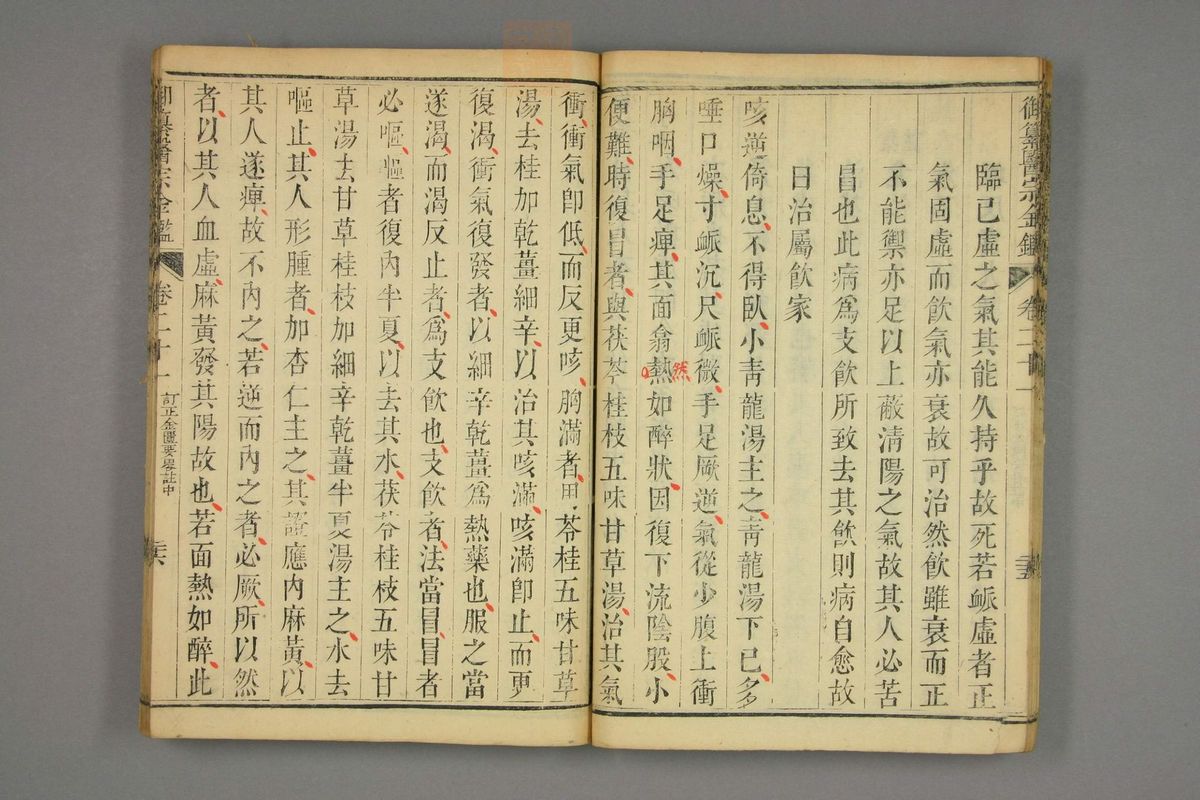 御纂醫宗金鑑 卷二十一 二十五
臨已虛之氣其能久持乎故死若䘑虛者正
氣固虛而飲氣亦衰故可治然飲雖衰而正
不能禦亦足以上蔽清陽之氣故其人必苦
昌也此病爲支飲所致去其飲則病自愈故
曰治屬飲家
咳逆倚息不得臥小青龍湯主之青龍湯下已多
唾口燥寸䘑沉尺䘑微手足厥逆氣從少腹上衝
胸咽手足痺其面翕熱然如醉狀因復下流陰股小
便難時復冒者與茯苓桂枝五味甘草湯治其氣
衝衝氣卽低而反更咳胸滿者用苓桂五味甘草
湯去桂加乾薑細辛以治其咳滿咳滿卽止而更
復渴衝氣復發者以細辛乾薑爲熱藥也服之當
遂渴而渴反止者爲支飲也支飲者法當冒冒者
必嘔嘔者復內半夏以去其水茯苓桂枝五味甘
草湯去甘草桂枝加細辛乾薑半夏湯主之水去
嘔止其人形腫者加杏仁主之其證應內麻黃以
其人遂痺故不內之若逆而內之者必厥所以然
者以其人血虛麻黃發其陽故也若面熱如醉此
御纂醫宗金鑑 卷二十一 訂正金匱要畧註中 二十六